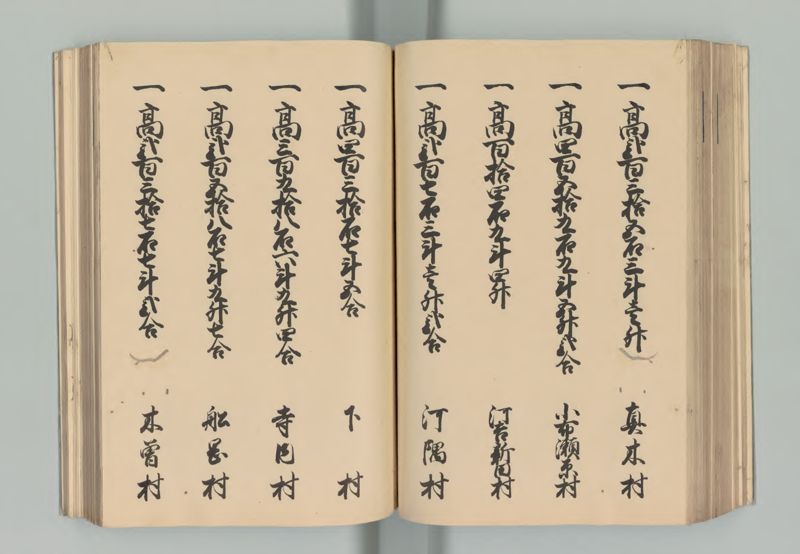 一高弐百三拾五石三斗壱升 真木村
一高四百五拾九石九斗五升弐合 小布瀬原村
一高百拾四石九斗四升 河吉新田村
一高弐百七石三斗壱升弐合 河隅村
一高四百三拾石七斗五合 下村
一高三百九拾八石六斗九升四合 寺尺村
一高弐百五拾八石七斗九升七合 船岡村
一高弐百三拾七石七斗弐合 木曽村